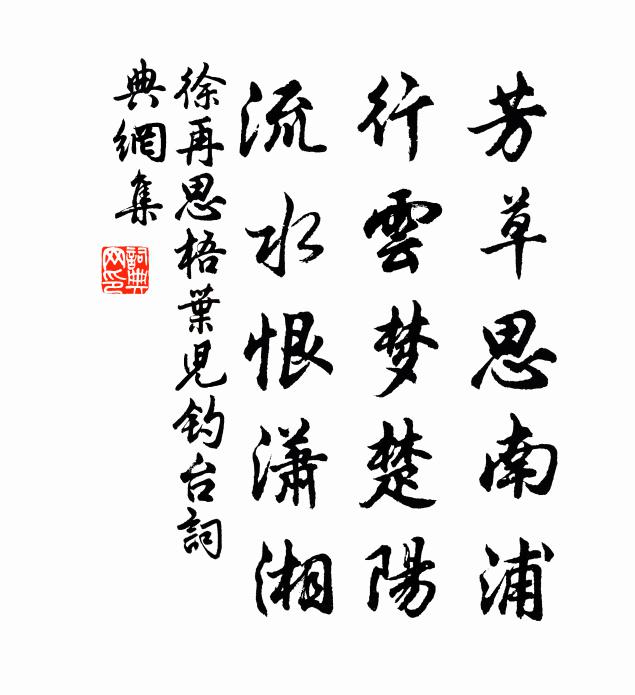 芳草思南浦
行雲梦楚陽
流水恨瀟湘
徐再思梧葉児釣台詞
典網集
詞典
网印